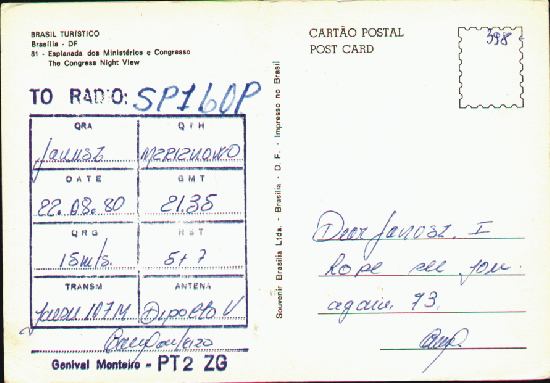 BRASIL TURÍSTICO
Brasília - DF
81 - Esplanada dos Ministérios e Congresso
The Congress Night View
TO RADIO: SP160P
QRA QTH
Janusz
DATE GMT
22.08.80 2135
QRG RST
15m/s. 5+7
TRANSM ANTENA
107M Dipolo V
Genival Monteiro - PT2 ZG
Souvenir Brasília Ltda. - Brasília - D. F. - Impresso no Brasil
CARTÃO POSTAL
POST CARD
398
Dear Janusz. I
hope see you.
again. 73.